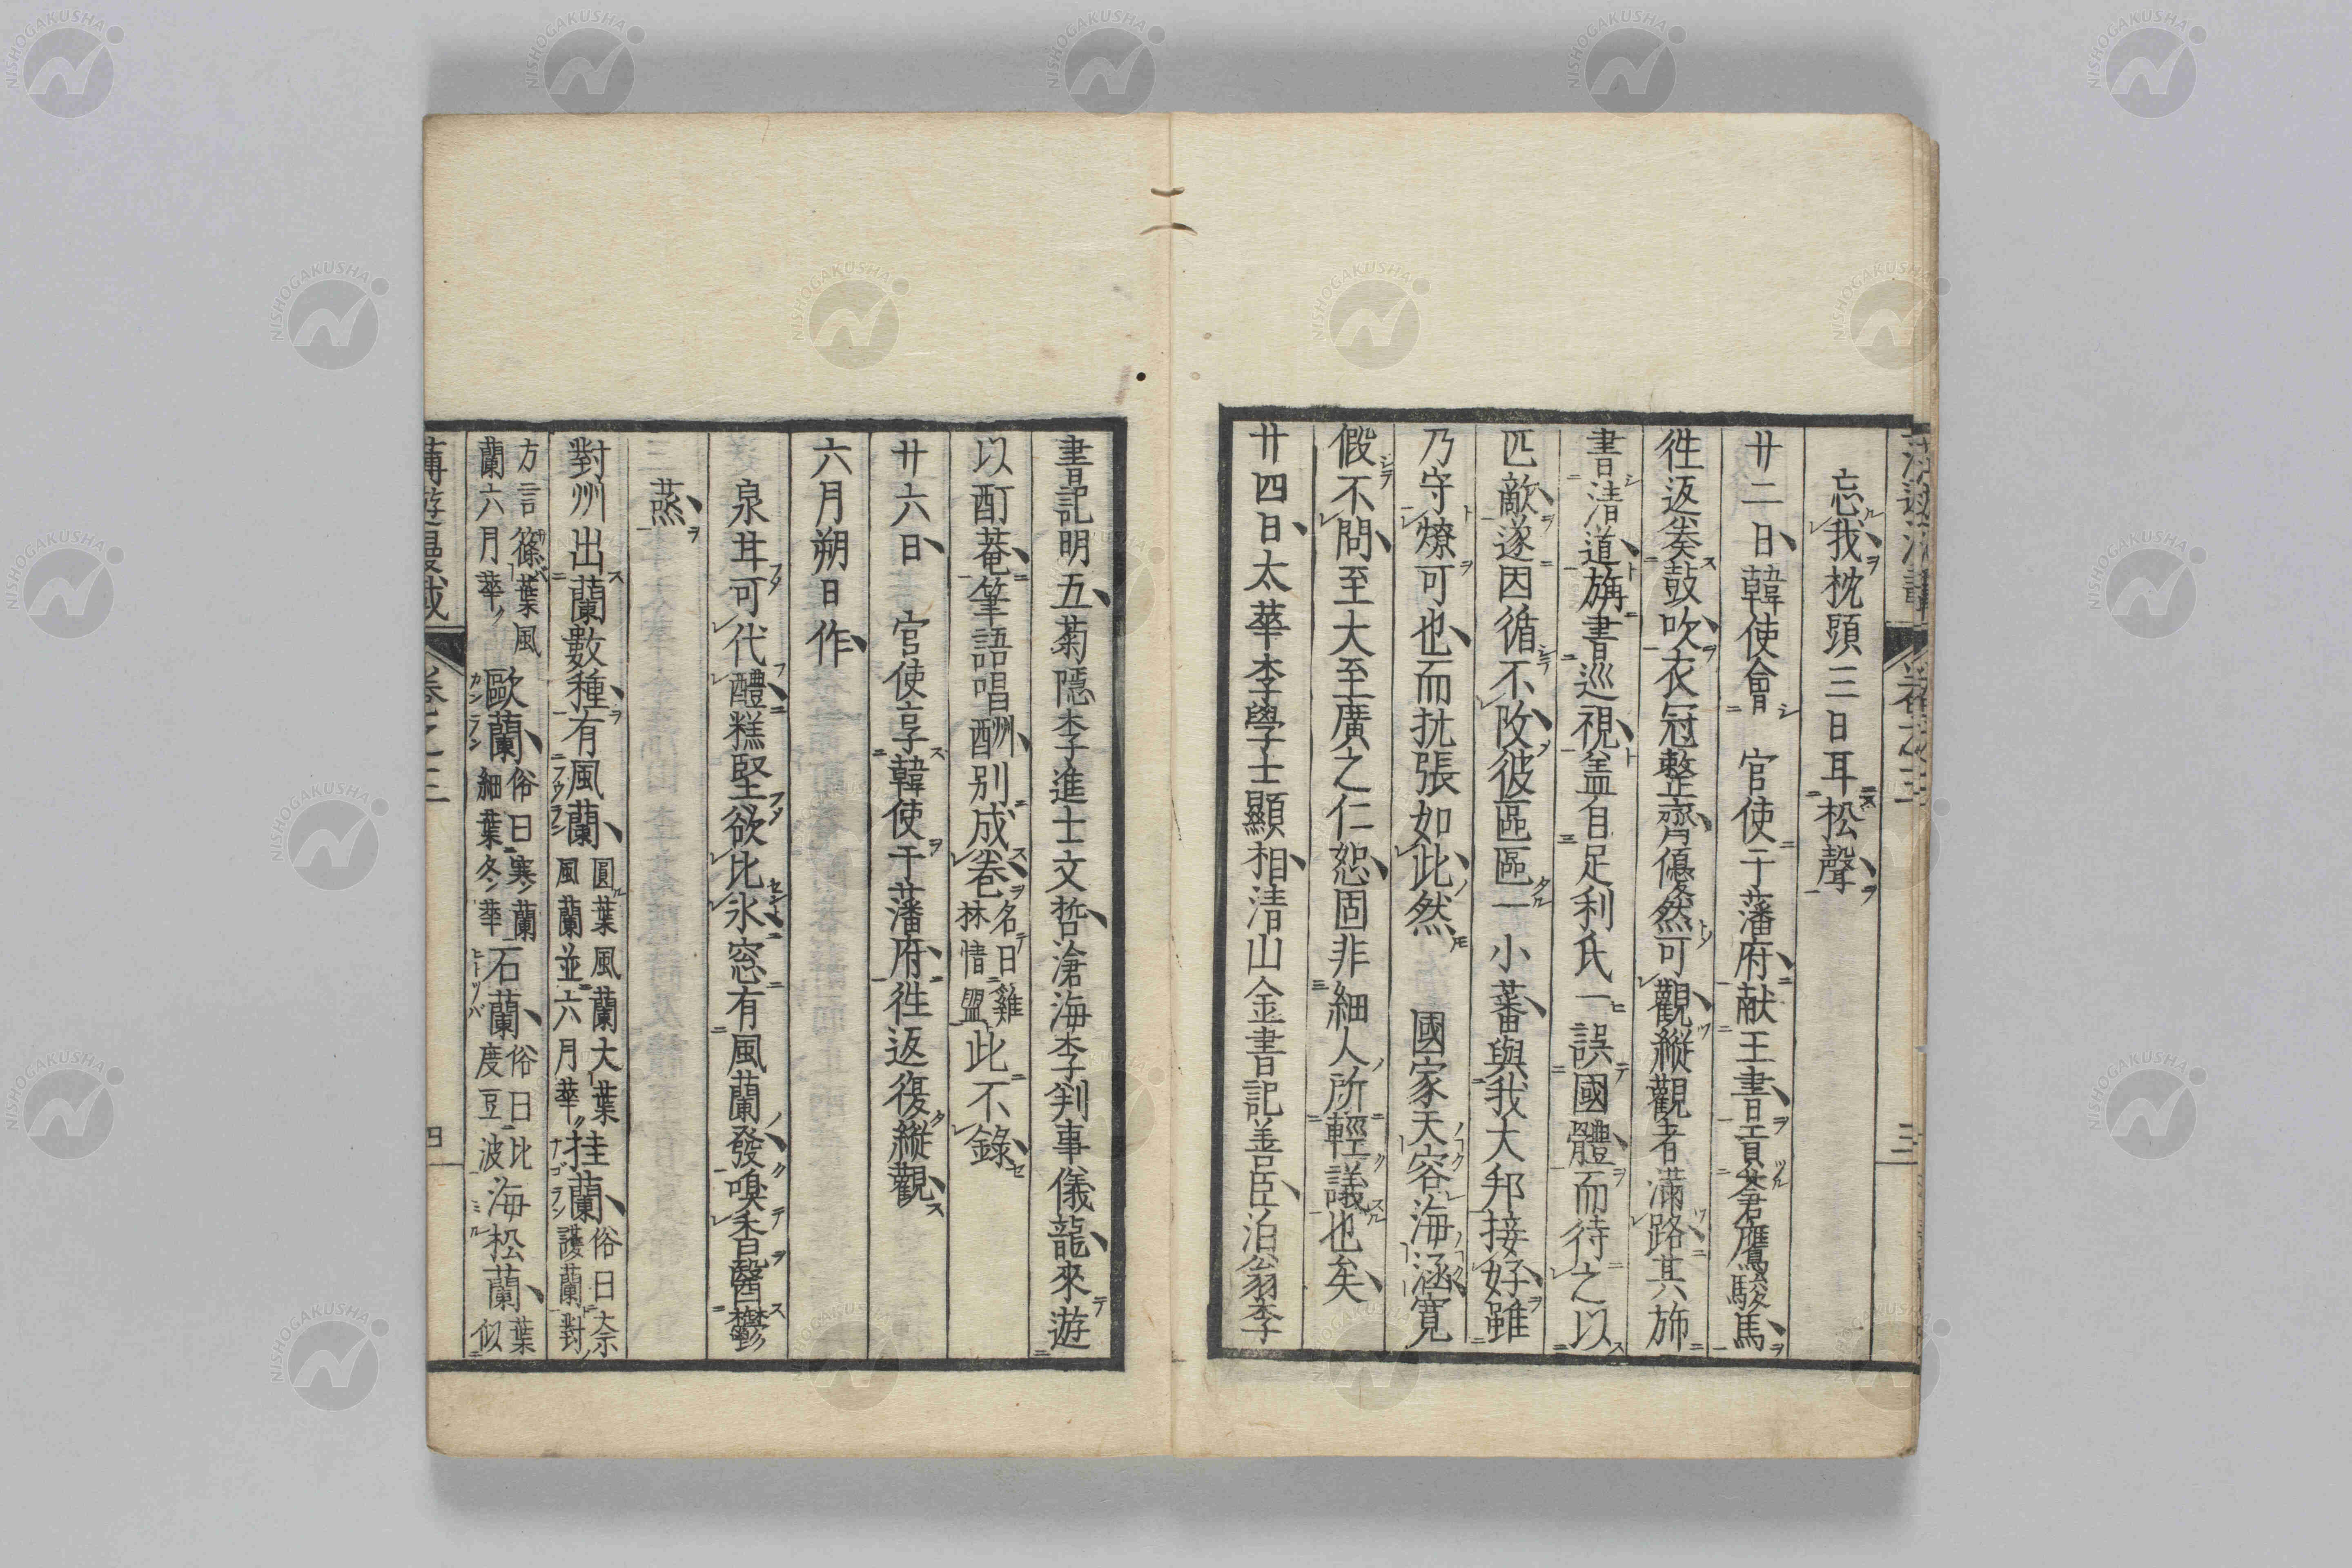 忘我枕頭三日耳松聲
廿二日韓使會 官使于藩府献王書貢蒼鷹駿馬
徃返奏鼓吹衣冠整齊優然可觀縱觀者滿路其斾
書清道旃書巡視盖自足利氏一誤國體而待之以
匹敵遂因循不改彼區區一小蕃與我大邦接好雖
乃守燎可也而抗張如此然 國家天容海涵寛
假不問至大至廣之仁恕固非細人所輕議也矣
廿四日太華李學士顯相清山金書記善臣泊翁李
書記明五菊隱李進士文哲滄海李判事儀龍來遊
以酊菴筆語唱酬別成卷名曰雞林情盟此不錄
廿六日 官使享韓使于藩府徃返復縱觀
六月朔日作
泉甘可代醴糕堅欲比氷窓有風蘭發嗅香醫鬱
三蒸
對州出蘭數種有風蘭圓葉風蘭大葉風蘭並六月華挂蘭俗曰奈護蘭對
方言篠葉風蘭六月華歐蘭俗曰寒蘭細葉冬華石蘭俗曰比度豆波海松蘭葉似
卷之三
四
三
NISHOGAKUSHA